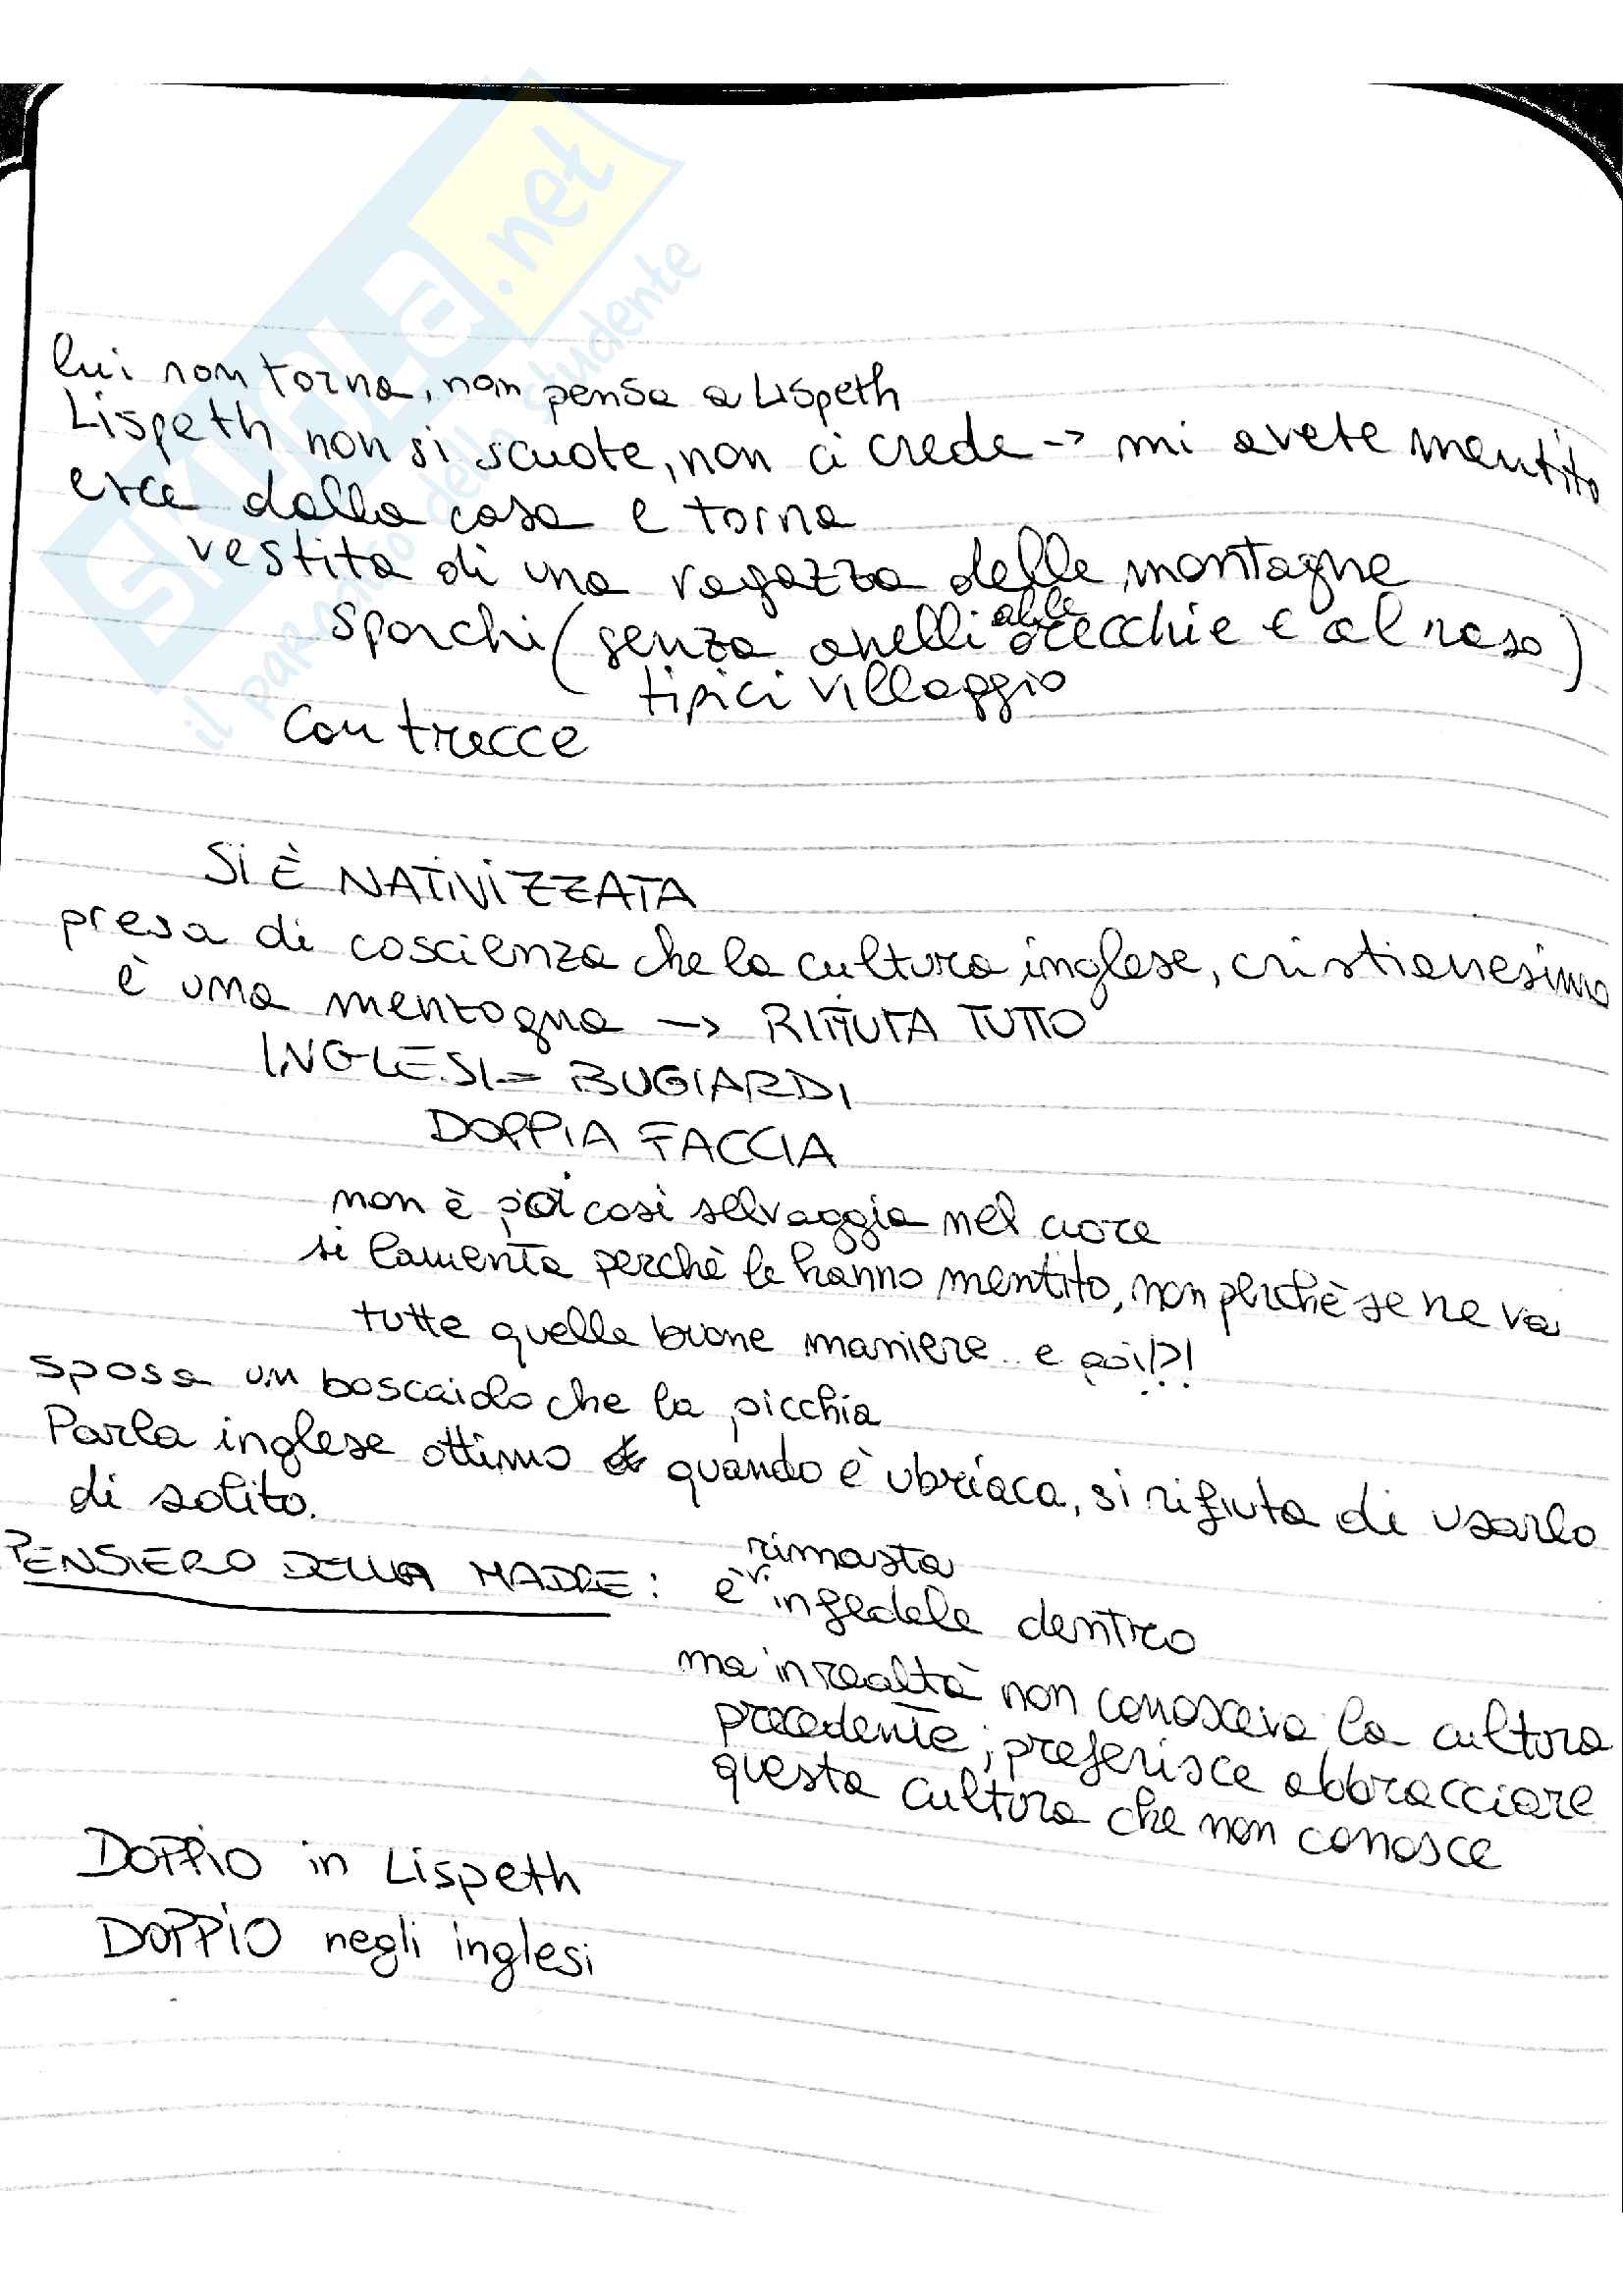 SKUOLA.net
il paradiso dello studente
lui non torna, non pensa a Lispeth
Lispeth non si scuote, non ci crede -> mi avete mentito
esce dalla casa e torna
vestita di una ragazza delle montagne
sporchi (senza anelli alle orecchie e al naso)
tipici villaggio
con trecce
SI È NATIVIZZATA
presa di coscienza che la cultura inglese, cristianesimo
è una menzogna -> RIFIUTA TUTTO
INGLESI = BUGIARDI
DOPPIA FACCIA
non è poi così selvaggia nel cuore
si lamenta perchè le hanno mentito, non perchè se ne va
tutte quelle buone maniere e poi!?!
sposa un boscaiolo che la picchia
Parla inglese ottimo quando è ubriaca, si rifiuta di usarlo
di solito.
PENSIERO DELLA MADRE: è rimasta infedele dentro
ma in realtà non conosceva la cultura
precedente; preferisce abbracciare
questa cultura che non conosce
DOPPIO in Lispeth
DOPPIO negli inglesi